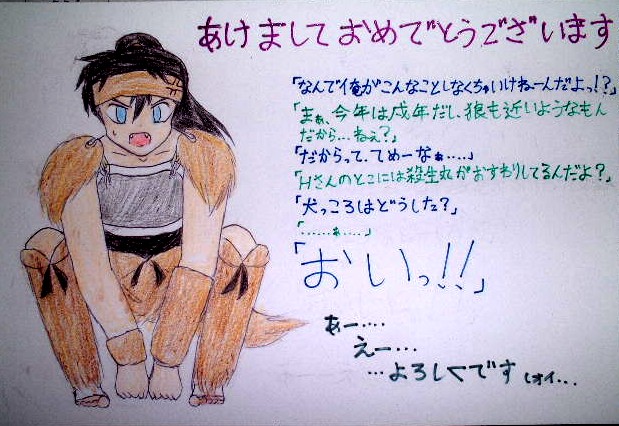 あけましておめでとうございます
「なんでイ俺がこんなことしなくちゃいけねーんだよっ!?」
「まぁ、今年は戌年だし、狼も近いようなもん
だから…ねぇ?」
「だからって、てめーなぁ…‥」
「Hさんのとこには殺生丸がおすわりしてるんだよ?」
「犬っころはどうした?」
「……ぁ‥‥」
「おいっ!!」
あー‥‥
えー…
…よろしくです (オイ…